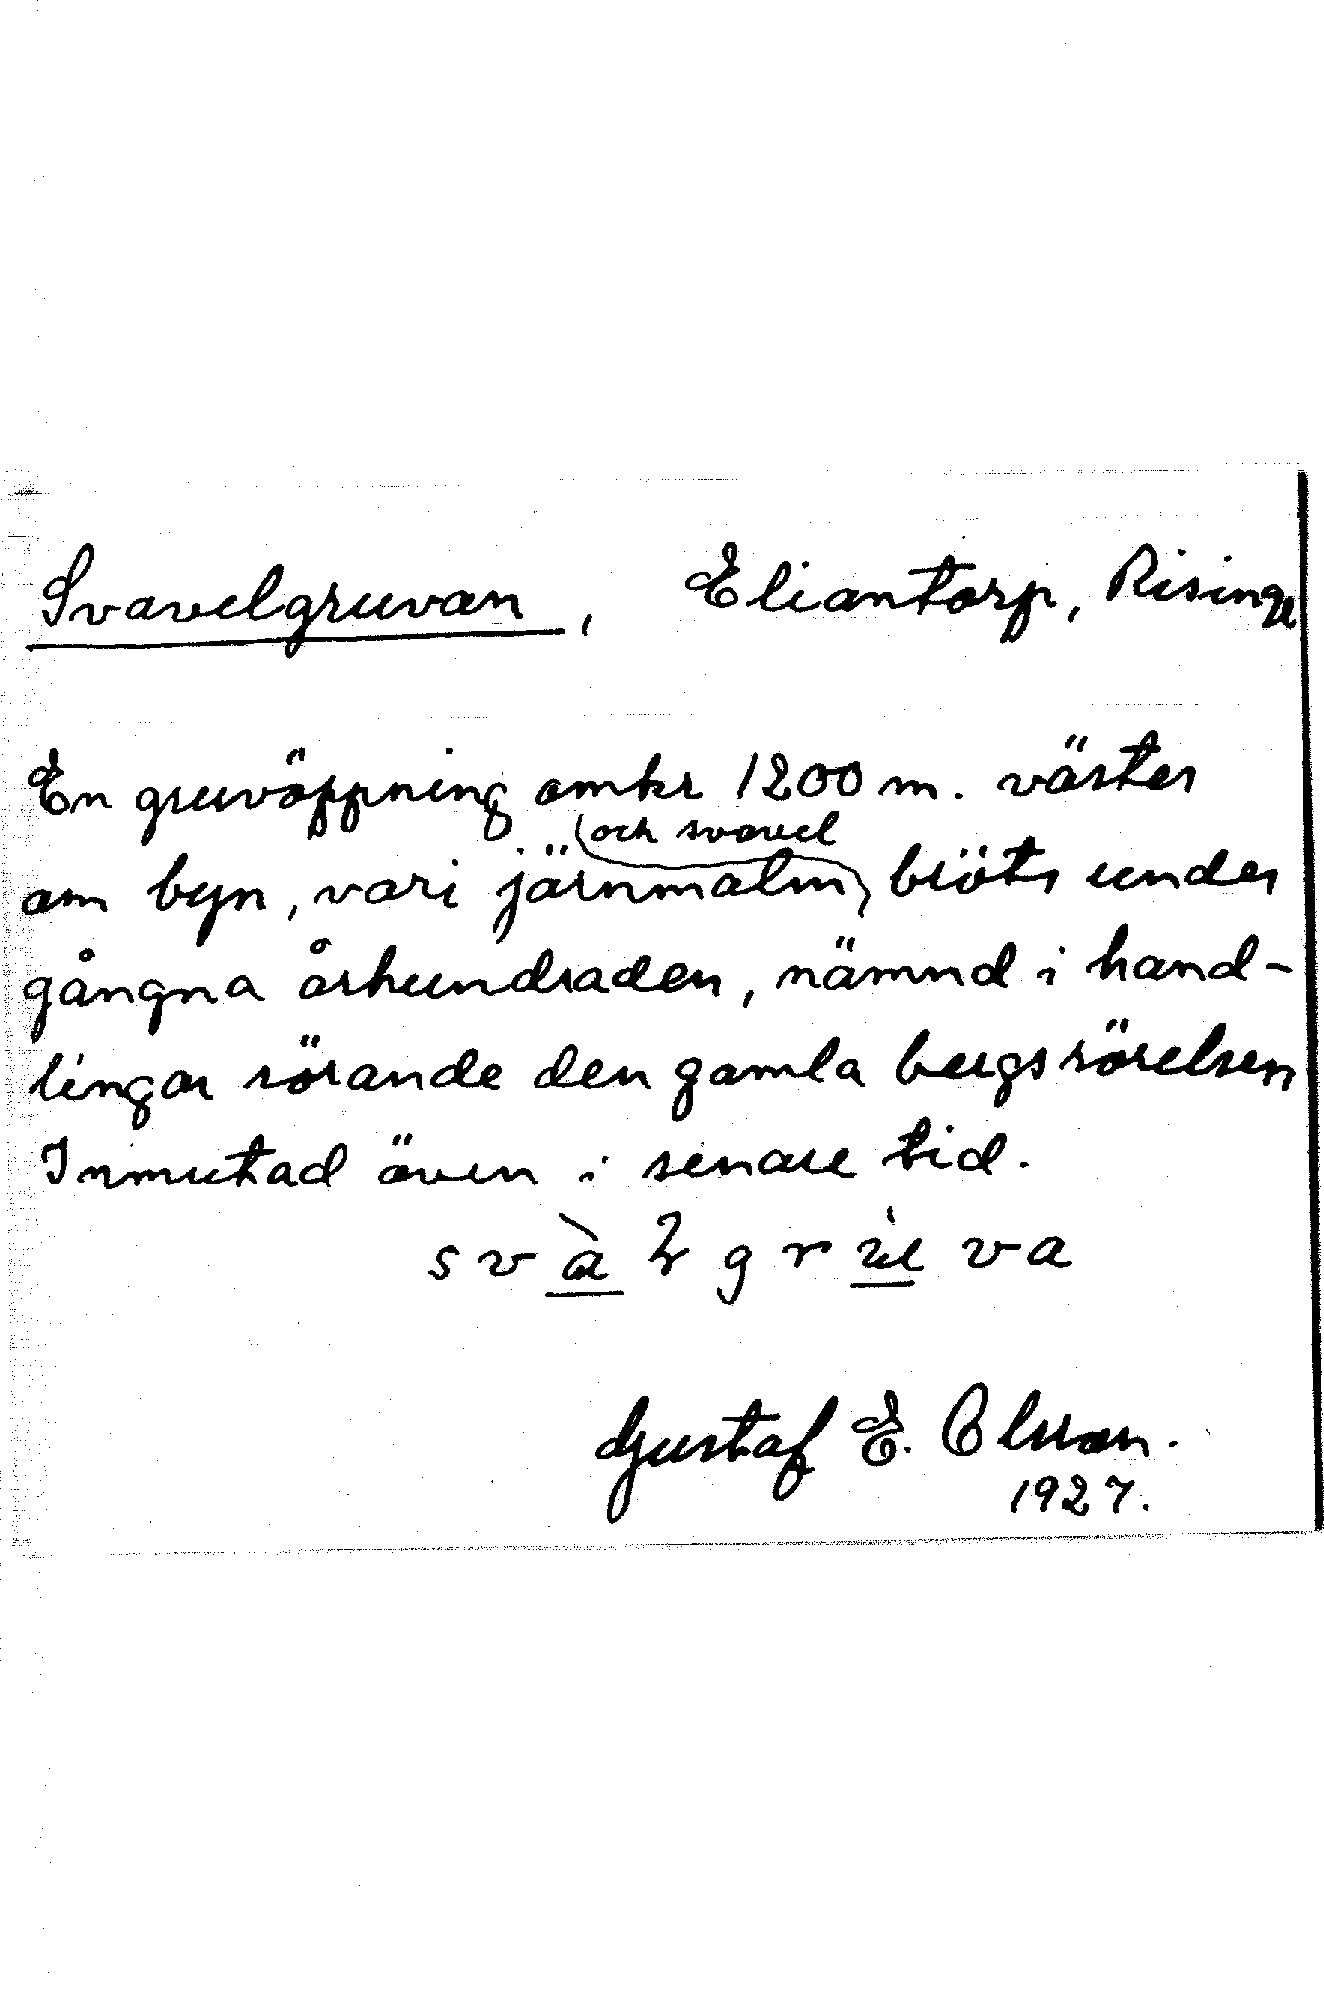 Svavelgruvan, Eliantorp, Risinge
En gruvöppning omkr 1200 m. väster
och svavel
om byn, vari järnmalm bröts under
gångna århundraden, nämnd i hand-
lingar rörande den gamla bergsrörelsen
Inmutad även i senare tid.
gruva
Gustaf E. Olsson.
1927.